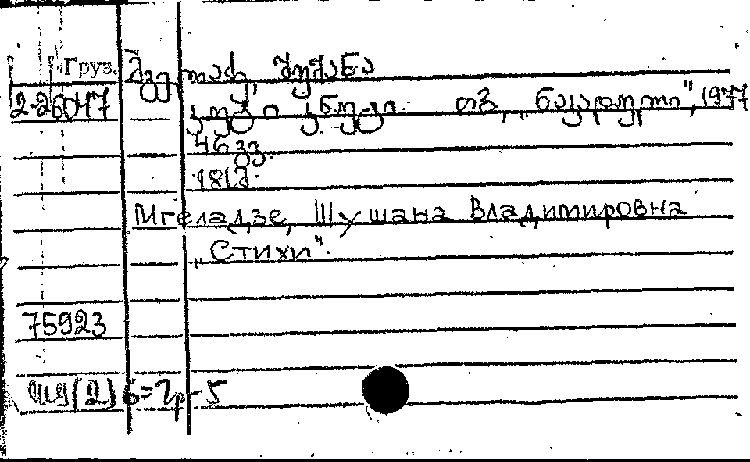 Груз. მგელაძე, შუშანა
2-26047 თბ., „ნაკადული", 1977
46 გვ.
Мгеладзе, Шушана Владимировна
„Стихи".
75923
(2) 6=Гр-5